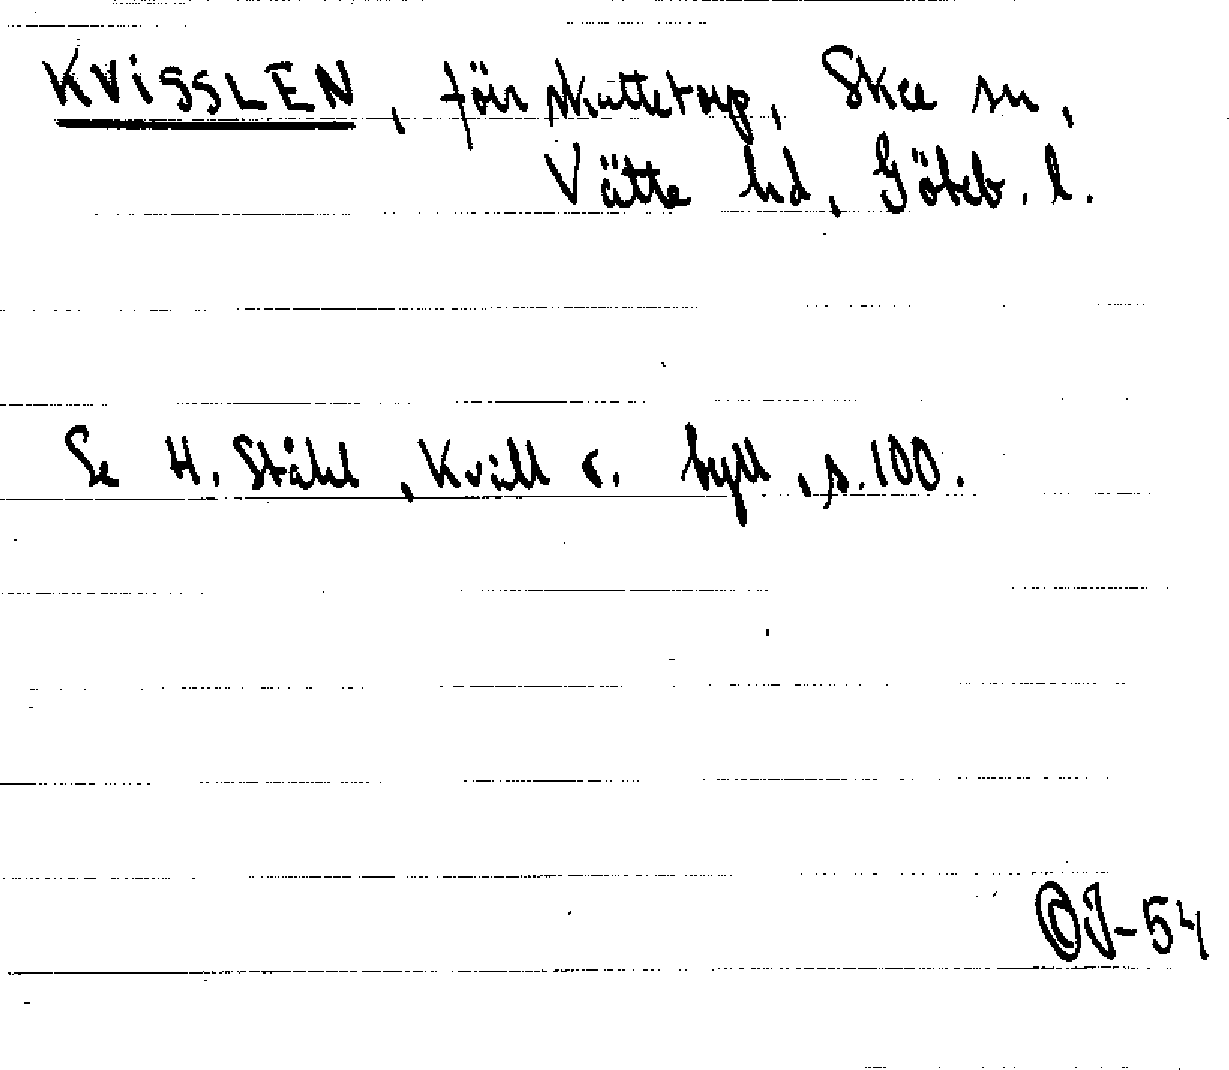 KVISSLEN, förr skattetorp, Skee sn,
Vätte hd, Göteb. l.
Se H. Ståhl, Kvill o. tyll, s. 100.
©J-54